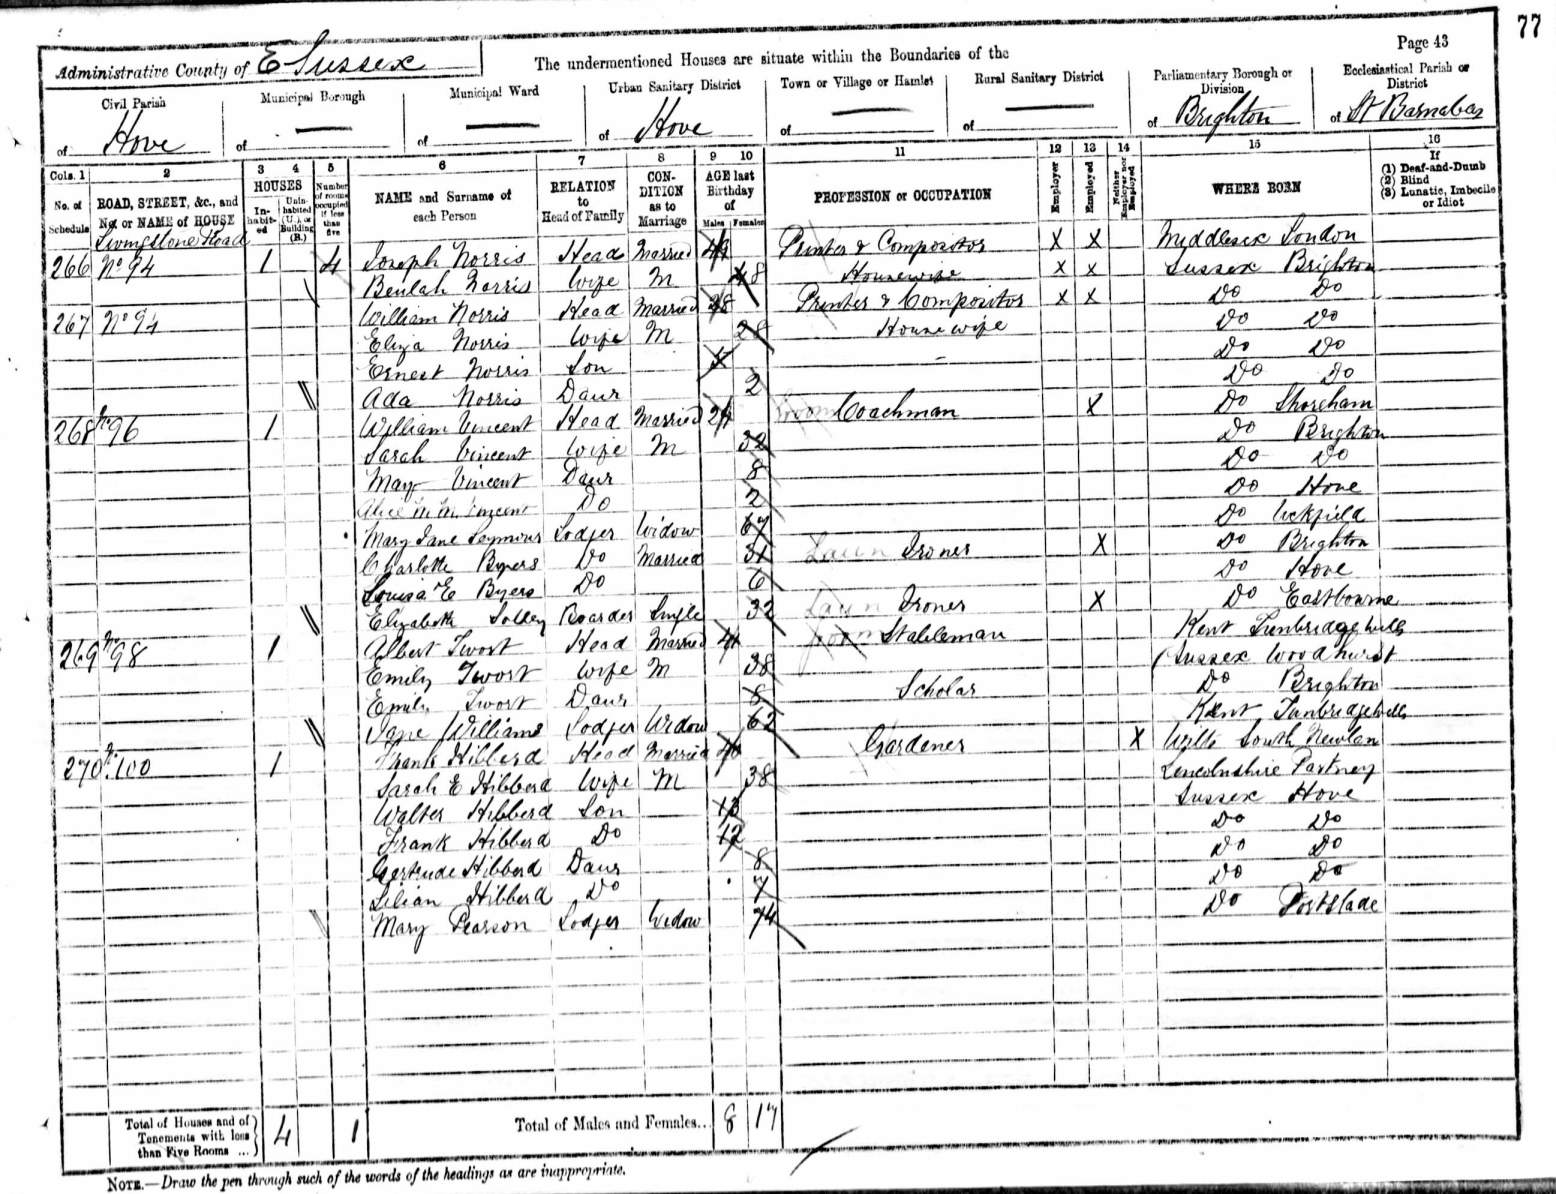 77
Page 43
Administrative County of E Sussex
The undermentioned Houses are situate within the Boundaries of the
Civil Parish of Hove
Municipal Borough of —
Municipal Ward of —
Urban Sanitary District of Hove
Town or Village or Hamlet of —
Rural Sanitary District of —
Parliamentary Borough or Division of Brighton
Ecclesiastical Parish or District of St Barnabas
Cols. 1 2 3 4 5 6 7 8 9 10 11 12 13 14 15 16
No. of Schedule
ROAD, STREET, &c., and No. or NAME of HOUSE
HOUSES
Inhabited
Uninhabited (U.), or Building (B.)
Number of rooms occupied if less than five
NAME and Surname of each Person
RELATION to Head of Family
CONDITION as to Marriage
AGE last Birthday of
Males Females
PROFESSION or OCCUPATION
Employer
Employed
Neither Employer nor Employed
WHERE BORN
If
(1) Deaf-and-Dumb
(2) Blind
(3) Lunatic, Imbecile or Idiot
Livingstone Road
266 No 94 1 4 Joseph Norris Head Married 49 Printer & Compositor X X Middlesex London
Beulah Norris Wife M 48 Housewife X X Sussex Brighton
267 No 94 William Norris Head Married 28 Printer & Compositor X X Do Do
Eliza Norris Wife M 28 Housewife Do Do
Ernest Norris Son Do Do
Ada Norris Daur 2 Do Do
268 No 96 1 William Vincent Head Married 24 Groom Coachman X Do Shoreham
Sarah Vincent Wife M 32 Do Brighton
May Vincent Daur 8 Do Do
Alice M. M. Vincent Do 2 Do Hove
Mary Jane Seymour Lodger Widow 67 Do Uckfield
Charlotte Byers Do Married 31 Laun Ironer X Do Brighton
Louisa E Byers Do 6 Do Hove
Elizabeth Solley Boarder Single 32 Laun Ironer X Do Eastbourne
269 No 98 1 Albert Twort Head Married 41 Groom Stableman Kent Tunbridge Wells
Emily Twort Wife M 38 Sussex Woodhurst
Emily Twort Daur 8 Scholar Do Brighton
Jane Williams Lodger Widow 62 Kent Tunbridge Wells
270 No 100 1 Frank Hibberd Head Married 40 Gardener X Wilts South Newton
Sarah E Hibberd Wife M 38 Lincolnshire Partney
Walter Hibberd Son 13 Sussex Hove
Frank Hibberd Do 12 Do Do
Gertrude Hibberd Daur 8 Do Do
Lilian Hibberd Do 7 Do Do
Mary Pearson Lodger Widow 74 Do Portslade
Total of Houses and of Tenements with less than Five Rooms ... 4 1
Total of Males and Females... 8 17
NOTE.—Draw the pen through such of the words of the headings as are inappropriate.